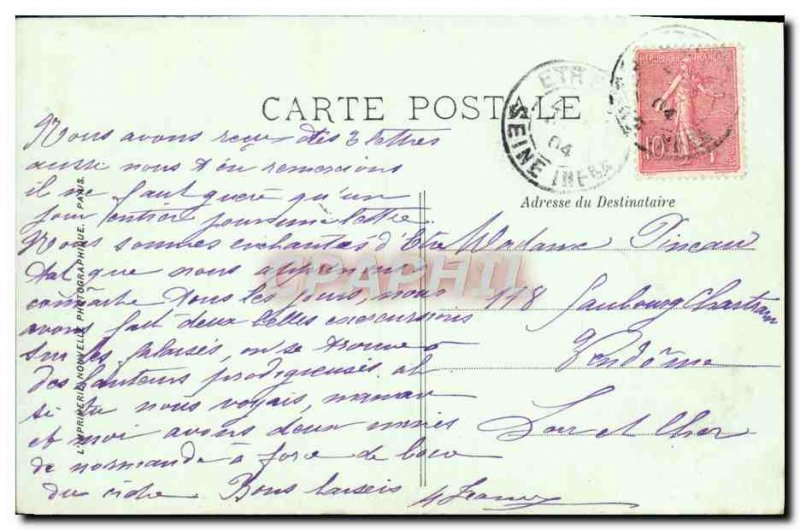 CARTE POSTALE
REPUBLIQUE FRANÇAISE
10
ETRE
04
SEINE INFRE
04
Adresse du Destinataire
L'IMPRIMERIE NOUVELLE PHOTOGRAPHIQUE. PARIS.
CPAPHIL
Nous avons reçu des 3 lettres
aussi nous t'en remercions
il ne faut guère qu'un
jour entière pour une lettre
Nous sommes enchantés d'Etretat que nous
tous les jours, nous
avons fait deux belles excurssions
sur les falaises, on se trouve à
des hauteurs prodigieuses, et
si tu nous voyais, maman
et moi avons deux mines
de normande à force de boire
du cidre Bons baisers
Madame Pineau
118 Faubourg Chartrain
Vendôme
Loir et Cher